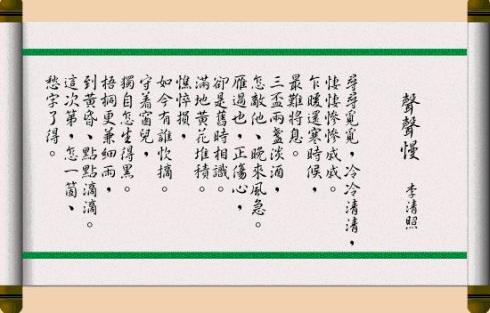 聲聲慢
李清照
尋尋覓覓，冷冷清清，
悽悽慘慘戚戚。
乍暖還寒時候，
最難將息。
三盃兩盞淡酒，
怎敵他、晚來風急。
雁過也，正傷心，
卻是舊時相識。
滿地黃花堆積。
憔悴損，
如今有誰忺摘。
守着窗兒，
獨自怎生得黑。
梧桐更兼細雨，
到黃昏、點點滴滴。
這次第，怎一箇、
愁字了得。